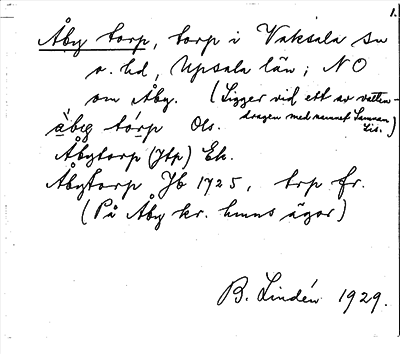 1.
Åby torp, torp i Vaksala sn
o. hd, Upsala län; NO
om Åby. (Ligger vid ett av vatten-
dragen med namnet Samnan
Lis.)
åby tórp Ols.
Åbytorp (Jtp) Ek.
Åbytorp Jb 1725, trp fr.
(På Åby kr. hmns ägor)
B. Lindén 1929.